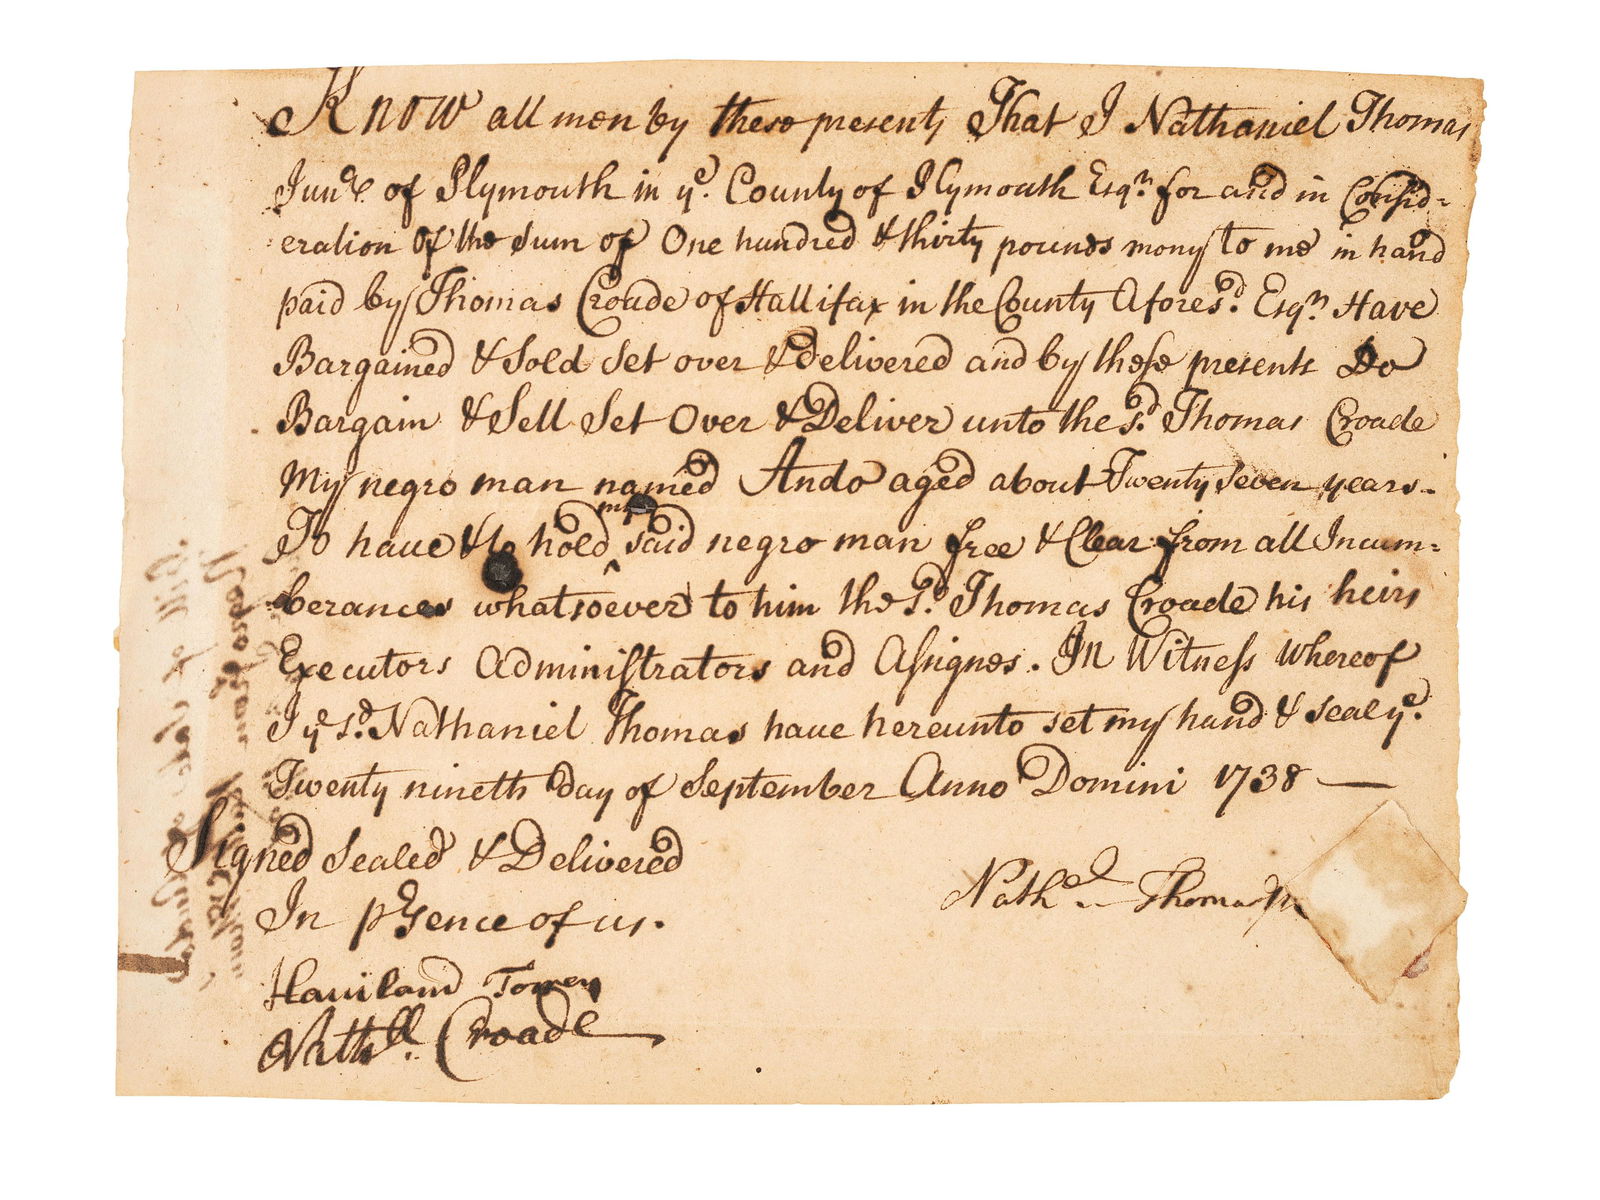 Know all men by these presents That I Nathaniel Thomas
Junr. of Plymouth in ye. County of Plymouth Esqr. for and in Consid=
eration Of the Sum of One hundred & thirty pounds mony to me in hand
paid by Thomas Croade of Hallifax in the County Aforesd. Esqr. Have
Bargained & Sold Set over & Delivered and by these presents Do
Bargain & Sell Set Over & Deliver unto the sd. Thomas Croade
My negro man named Ando aged about Twenty Seven years.
To have & to hold my said negro man free & Clear from all Incum=
berances whatsoever to him the sd. Thomas Croade his heirs
Executors Administrators and Assignes. In Witness whereof
I ye sd. Nathaniel Thomas have hereunto set my hand & seal ye.
Twenty nineth Day of September Anno Domini 1738
Signed Sealed & Delivered
In presence of us.
Nathel. Thomas Jr
Haviland Torrey
Nathll. Croade